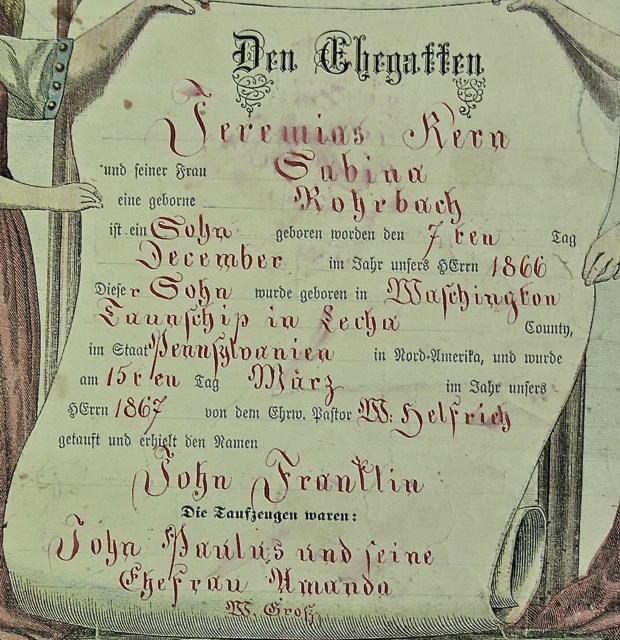 Den Ehegatten
Jeremias Kern
und seiner Frau Sabina
eine geborne Rohrbach
ist ein Sohn geboren worden den 7ten Tag
December im Jahr unsers HErrn 1866
Dieser Sohn wurde geboren in Waschington
Taunschip in Lecha County,
im Staat Pennsylvanien in Nord-Amerika, und wurde
am 15ten Tag März im Jahr unsers
HErrn 1867 von dem Ehrw. Pastor W. Helfrich
getauft und erhielt den Namen
John Franklin
Die Taufzeugen waren:
John Paulus und seine
Ehefrau Amanda
W. Groß